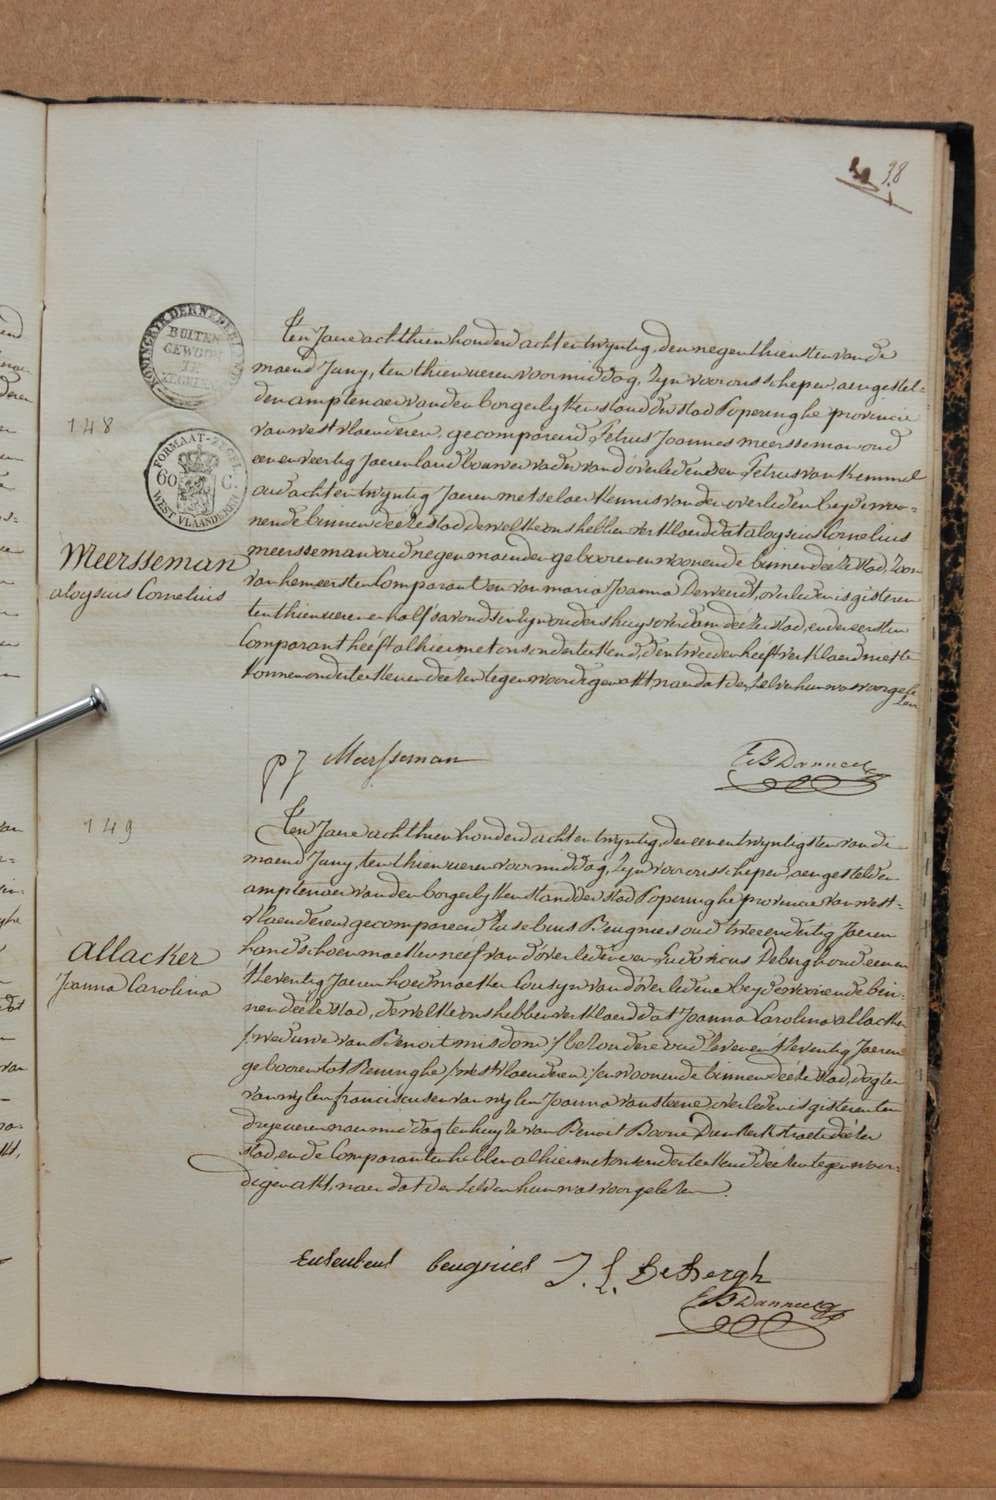 38
KONINGRYK DER NEDERLANDEN
BUITEN
GEWOON
148
FORMAAT-ZEGEL
60 C.
WEST VLAANDEREN
Ten Jaere achtthien honderd acht en twyntig, den negenthiensten van de
maend Juny, ten thien ueren voormiddag, Zyn voor ons schepen, aengestel-
den amptenaer van den borgerlyken stand der stad Poperinghe provincie
van westvlaenderen, gecompareerd Petrus Joannes meersseman oud
een en veertig Jaeren landbouwer vader van d'overledene en Petrus van Kemmel
oud acht en twyntig Jaeren metselaer Kennis van den overleden beyde woo-
nende binnen deéze stad, dewelke ons hebben verklaerd dat aloysius Cornelius
meersseman oud negen maenden gebooren en woonende binnen deéze stad, Zoon
van hemeersten Comparant en van maria Joanna Dewerdt, overleden is gisteren
ten thien ueren en half s'avonds in Zyn ouders huys overdam deézer stad, en den eersten
Comparant heeft alhier met ons onderteekend, den tweeden heeft verklaerd niet te
konnen onderteekenen deézen tegenwoordigen akt naer dat den Zelven hun was voorgele
Zen
Meersseman
aloysius Cornelius
pj Meersseman
149
Ten Jaere achtthien honderd acht en twyntig, den een en twyntigsten van de
maend Juny, ten thien ueren voormiddag, Zyn voor ons schepen, aengestelden
amptenaer van den borgerlyken stand der stad Poperinghe provincie van west-
vlaenderen, gecompareerd Eusebius Beugnies oud twee en dertig Jaeren
handschoenmaeker neéf van d'overledene en Ludovicus Debergh oud een en
Zeventig Jaeren hoedmaeker Cousyn van d'overledene beyde woonende bin-
nen deéze stad, dewelke ons hebben verklaerd dat Joanna Carolina allacker
/weduwe van Benoit misdom/ bezondere oud Zeven en Zeventig Jaeren
gebooren tot Reninghe /westvlaenderen/ en woonende binnen deéze stad, dogter
van wylen franciscus en van wylen Joanna vansteene overleden is gisteren ten
dry ueren naer middag ten huyze van Benoit Boone Duinkerkstraete deézer
stad, en de Comparanten hebben alhier met ons onderteekend deézen tegenwoor-
digen akt, naer dat den Zelven hun was voorgelezen.
allacker
Joanna Carolina
Eusebius beugnies J. L. DeBergh